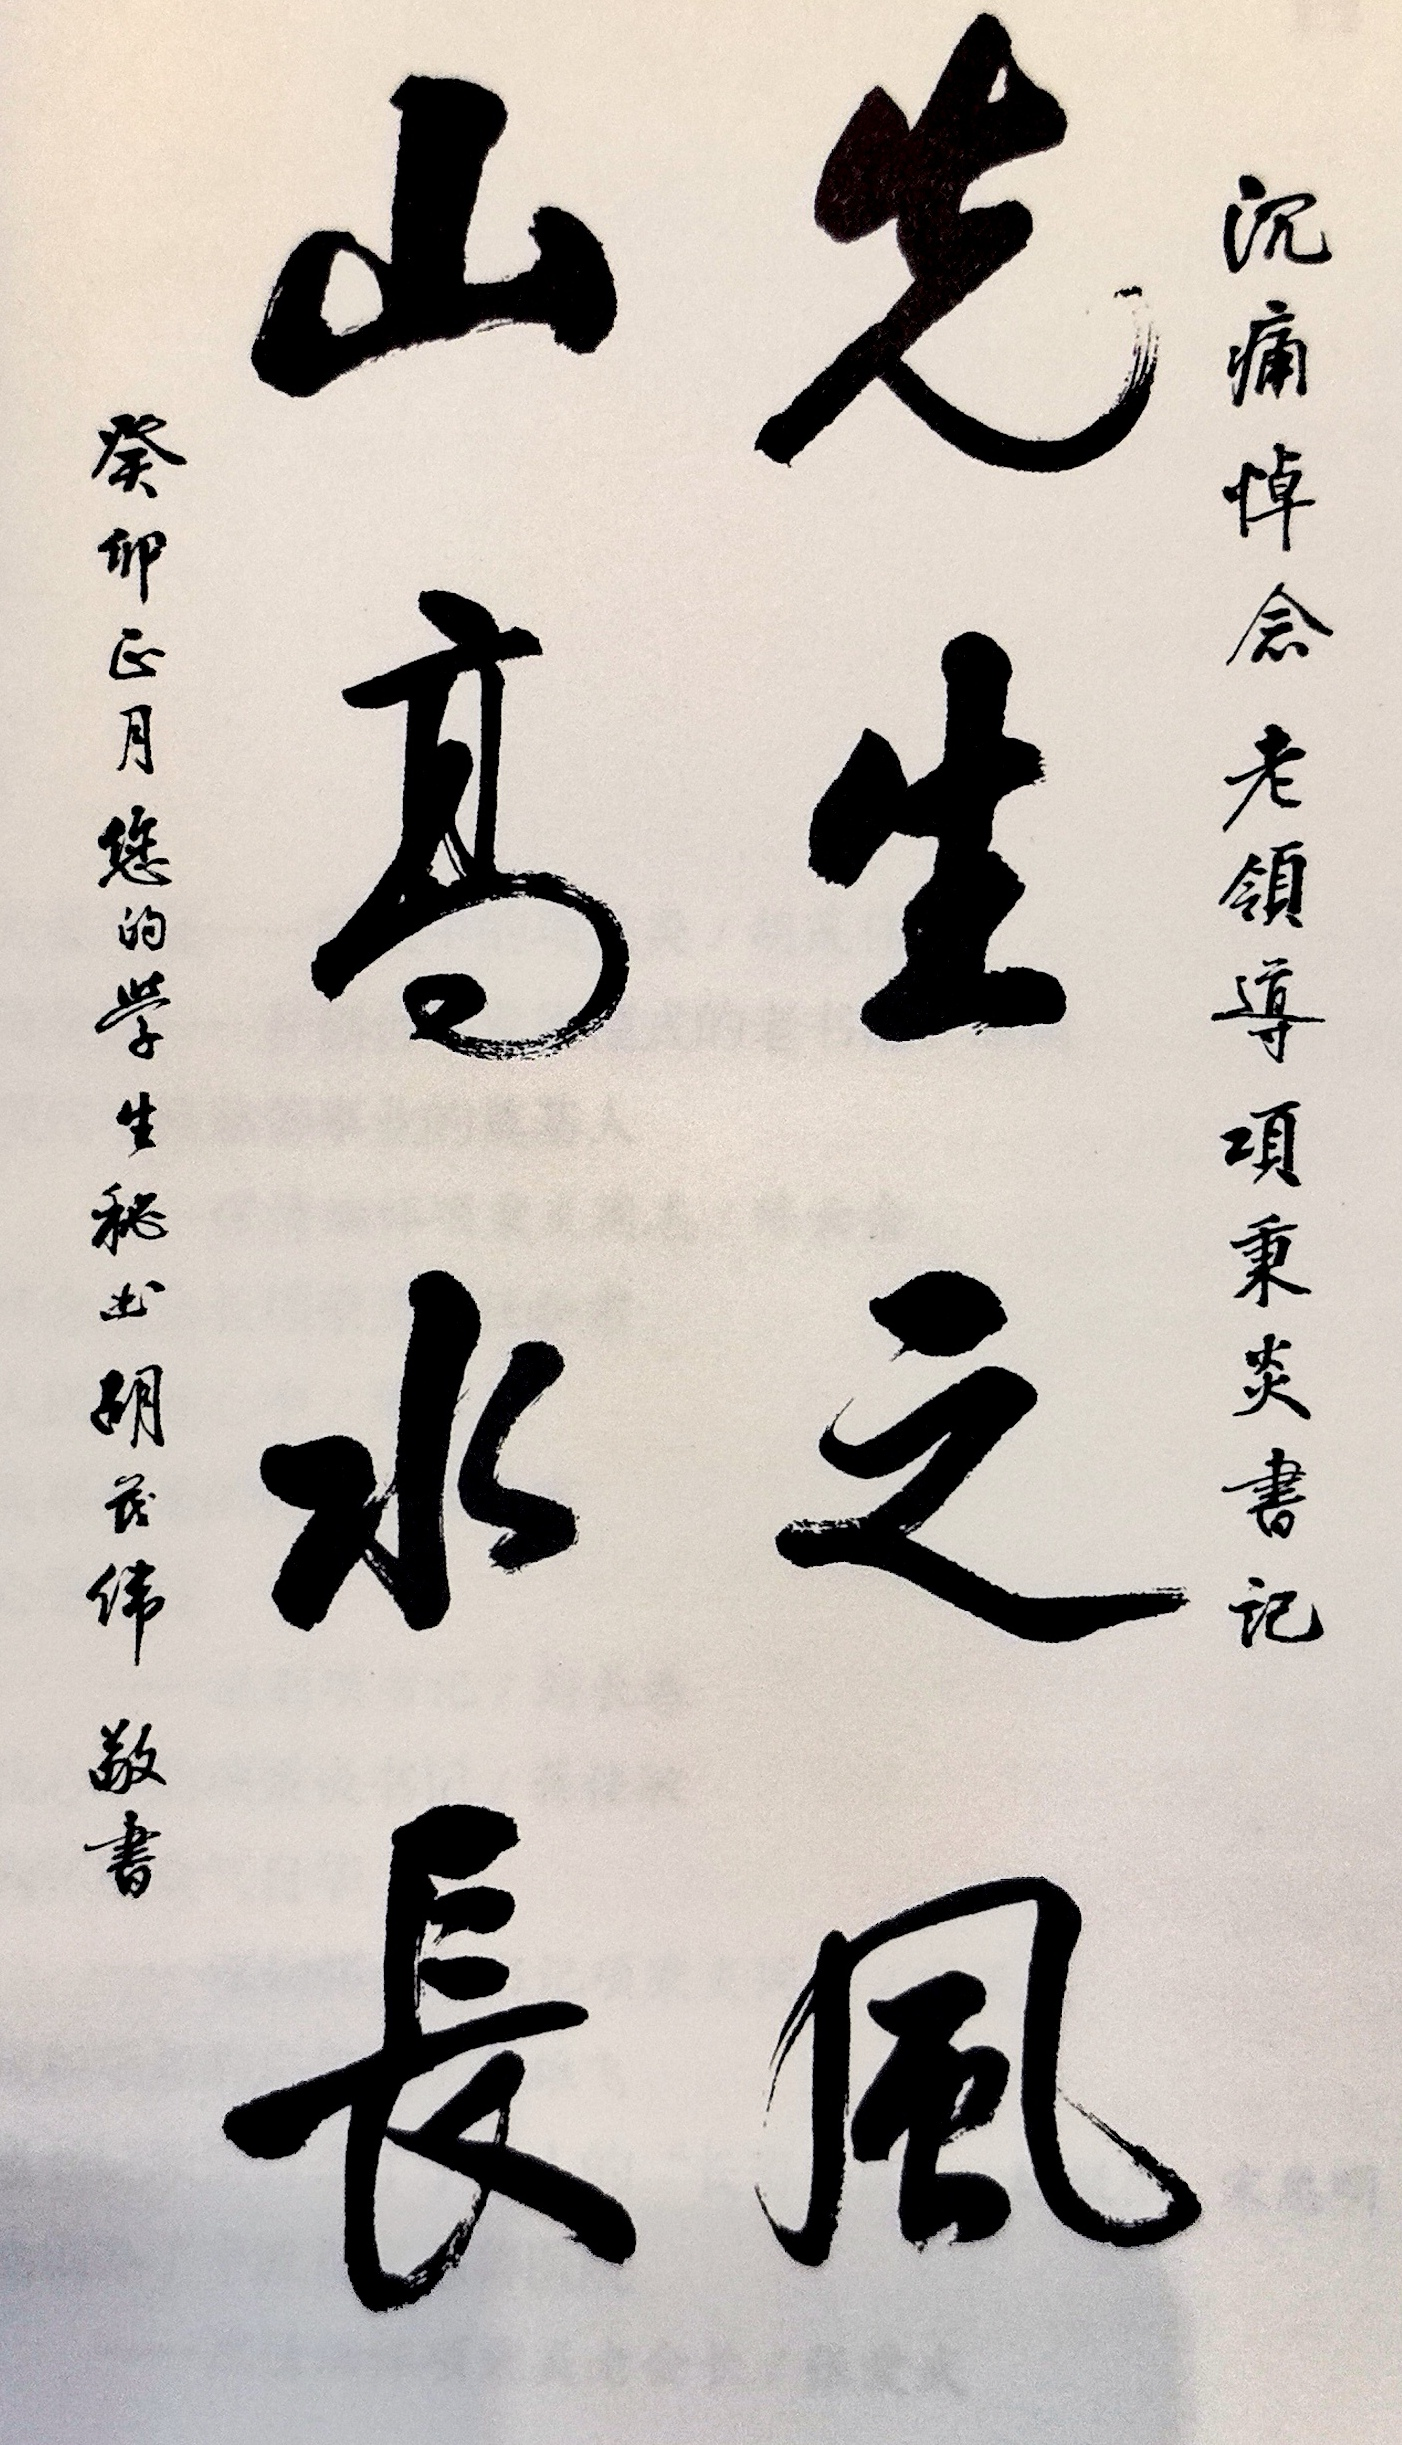 沉痛悼念老領導項秉炎書記
先生之風
山高水長
癸卯正月您的学生秘书胡茂伟敬書